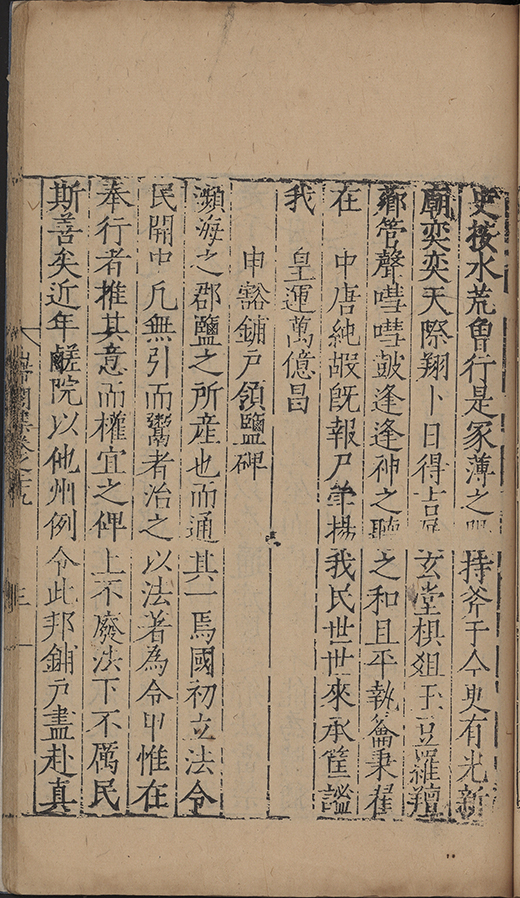 史按水荒曾行是冢薄之 持斧于今更有光新
廟奕奕天際翔卜日得吉 玄堂棋俎玉豆羅羶
薌管聲嘒嘒鼓逢逢神之聽之和且平執龠秉翟
在 中唐純嘏旣報尸 揚我民世世來承筐謐
我 皇運萬億昌
申豁鋪戶領鹽碑
瀕海之郡鹽之所產也而通其一焉國初立法令
民開中凡無引而鬻者治之以法著為令甲惟在
奉行者推其意而權宜之俾上不廢法下不厲民
斯善矣近年鹺院以他州例令此邦鋪戶盡赴真
集卷之九
三